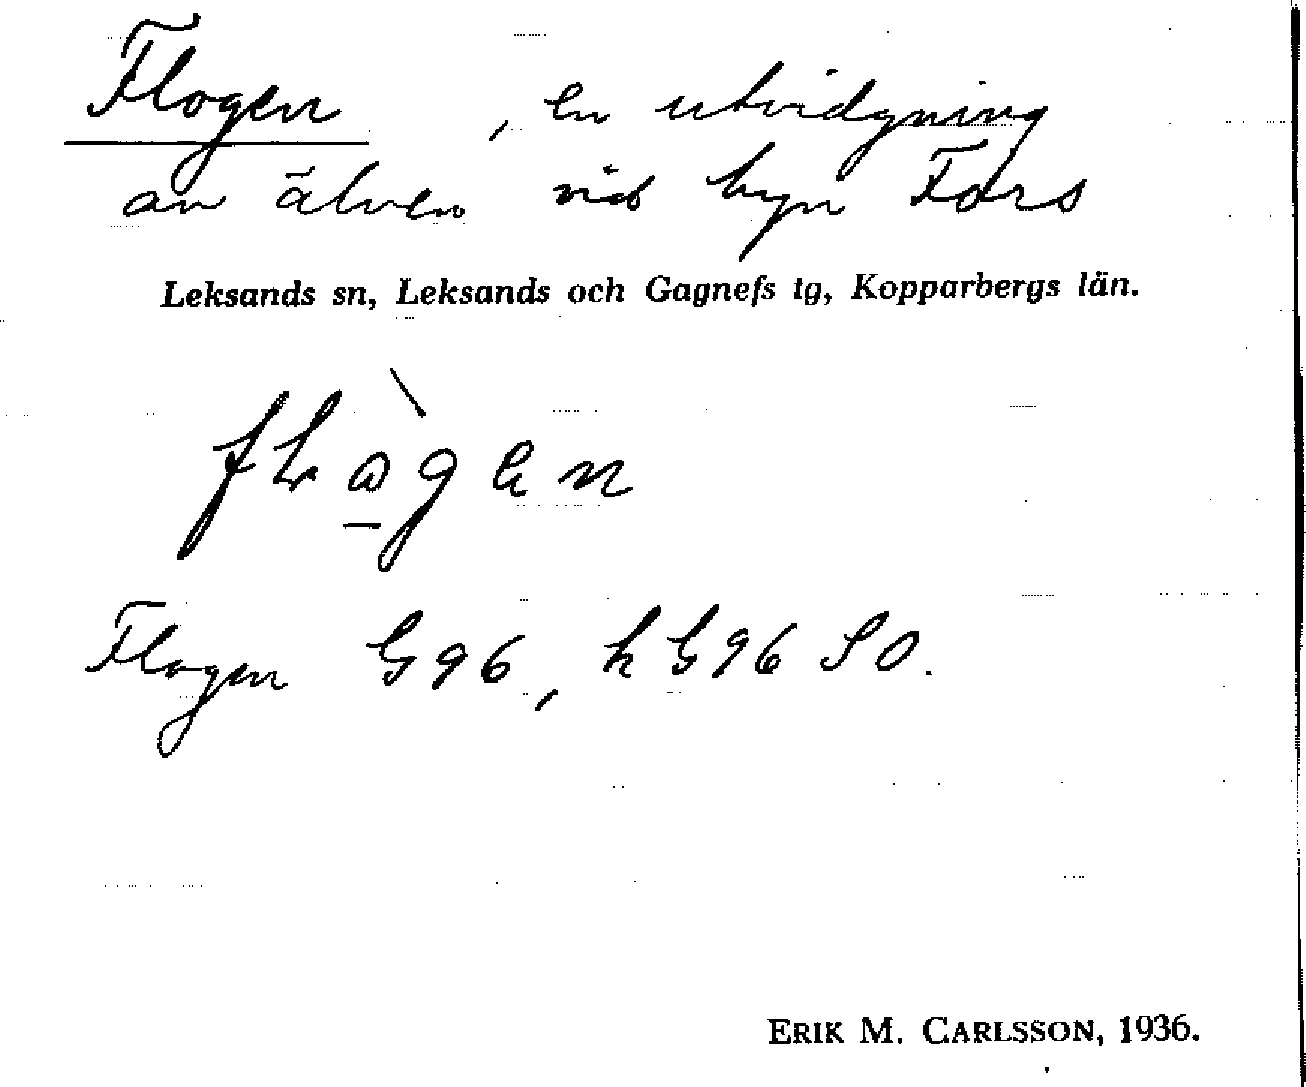 Flogen, en utvidgning
av älven vid byn Fors
Leksands sn, Leksands och Gagnefs tg, Kopparbergs län.
Flogen G96, h G96 SO.
ERIK M. CARLSSON, 1936.